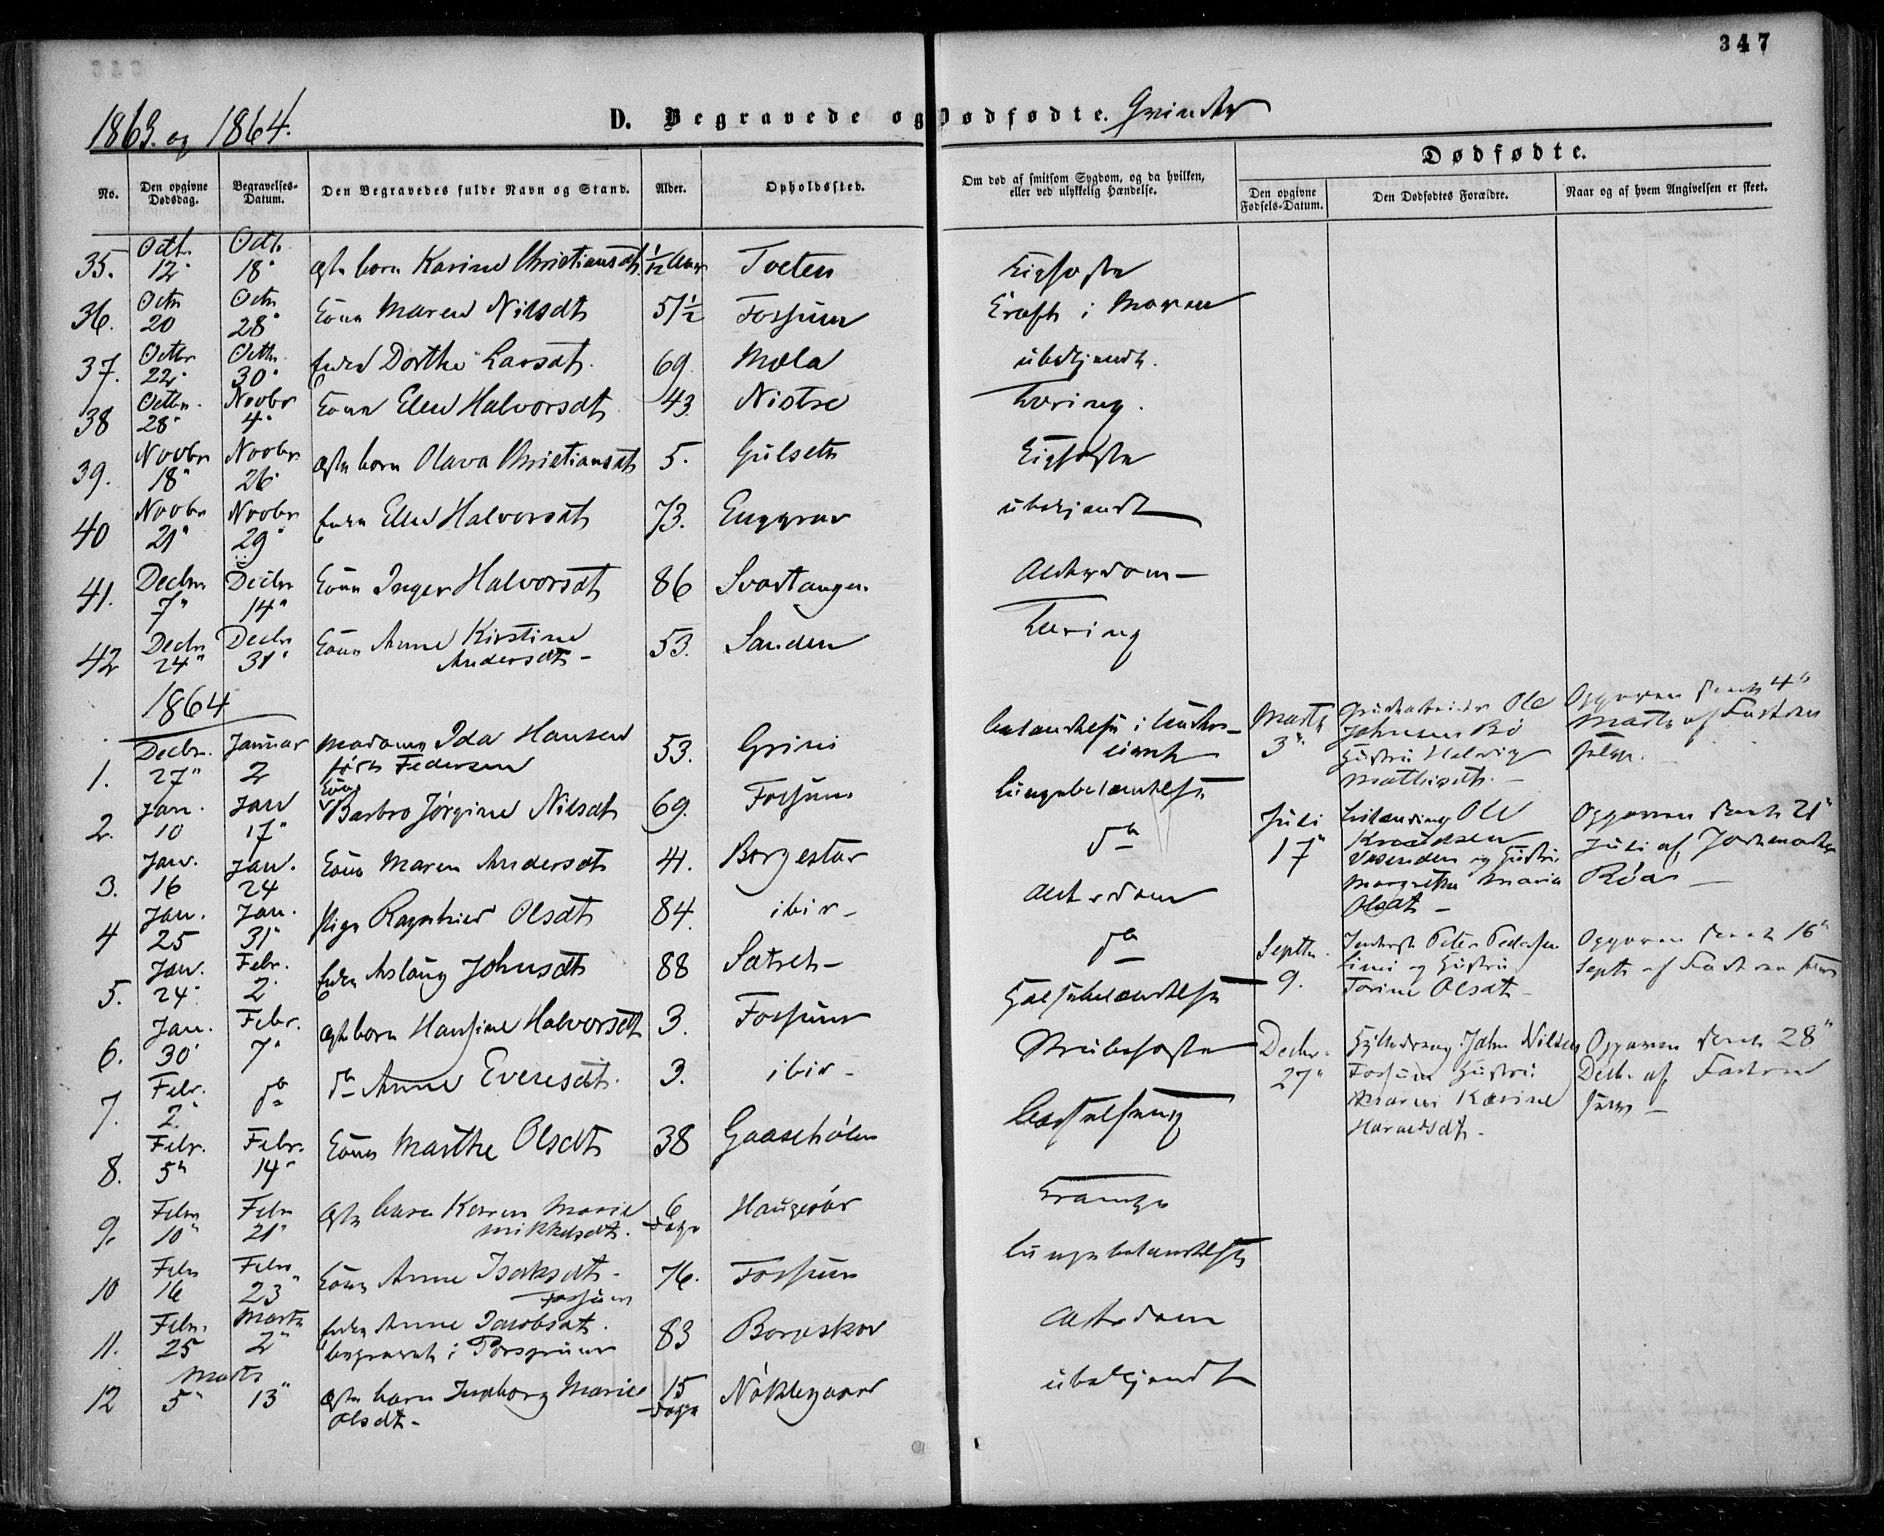 347
1863. og 1864.
D. Begravede og Dødfødte. Qvinder
No.
Den opgivne Dødsdag.
Begravelses-Datum.
Den Begravedes fulde Navn og Stand.
Alder.
Opholdssted.
Om død af smitsom Sygdom, og da hvilken, eller ved ulykkelig Hændelse.
Dødfødte.
Den opgivne Fødsels-Datum.
Den Dødfødtes Forældre.
Naar og af hvem Angivelsen er skeet.
35. Octbr. 12" Octbr. 18" Ægte barn Karine Christiansdt. 1/12 Aar Tveten Kighoste
36. Octbr 20 Octbr 28" Kone Maren Nilsdt 51½ Fossum Kræft i Maven
37. Octbr 22" Octbr. 30" Enke Dorthe Larsdt. 69. Mæla ubekjendt.
38 Octbr. 28" Novbr 4" Kone Elen Halvorsdt 43. Nistre Tæring.
39. Novbr 18" Novbr. 26" Ægte barn Olava Christiansdt 5. Gulseth Kighoste
40 Novbr 21" Novbr 29" Enke Elen Halvorsdt 73. Enggrav ubekjendt
41. Decbr. 7" Decbr 14" Kone Inger Halvorsdt 86 Svartangen Alderdom
42 Decbr 24" Decbr 31" Kone Anne Kirstine Andersdt- 53. Sanden Tæring
1864
1. Decbr. 27" Januar 2 Madame Ida Hansen født Federsen 53. Grini betændelse i
2. Jan. 10 Jan 17" Kone Barbro Jørgine Nilsdt 69. Fossum Lungebetændelse
3. Jan. 16 Jan. 24 Kone Maren Andersdt 41. Borgestar do
4 Jan. 25 Jan. 31" Pige Ragnhild Olsdt 84. ibid- Alderdom
5. Jan. 24" Febr. 2" Enke Aslaug Johnsdt 88 Sætret- do
6. Jan. 30" Febr. 7" Ægte barn Hansine Halvorsdt 3. Fossum Halsbetændelse
7. Febr. 2." do do Anne Evensdt. 3. ibid- Strubehoste
8. Febr. 5" Febr. 14" Kone Marthe Olsdt 38 Gaasehølen Barselseng
9. Febr 10" Febr 21" Ægte barn Karen Marie Mikkelsdt. 6 Dage Haugerør Krampe
10 Febr 16 Febr 23" Kone Anne Isaksdt- Fossum 76. Fossum Lungebetændelse
11. Febr. 25 Marts 2" Enke Anne Jacobsdt. begravet i Porsgrund 83 Borgeskov Alderdom
12 Marts 5" 13" Ægte barn Ingeborg Marie Olsdt- 15 Dage Nøklegaard ubekjendt
Marts 3" Gruvearbeider Ole Johnsen Bø Hustru Helvig Mathisdt.- Opgaven skeet 4" Marts af Faderen selv.
Juli 17" Ole Knudsen og Hustru Margrethe Maria Olsdt- Opgaven skeet 21" Juli af Jordemoder Røar
Septbr. 9. Inderst Peter Pedersen Limi og Hustru Torine Olsdt- Opgaven skeet 16" Septb af Faderen selv
Decbr. 27" John Nilsen Fossum Hustru Maren Karine Haraldsdt- Opgaven skeet 28" Decb. af Faderen selv-